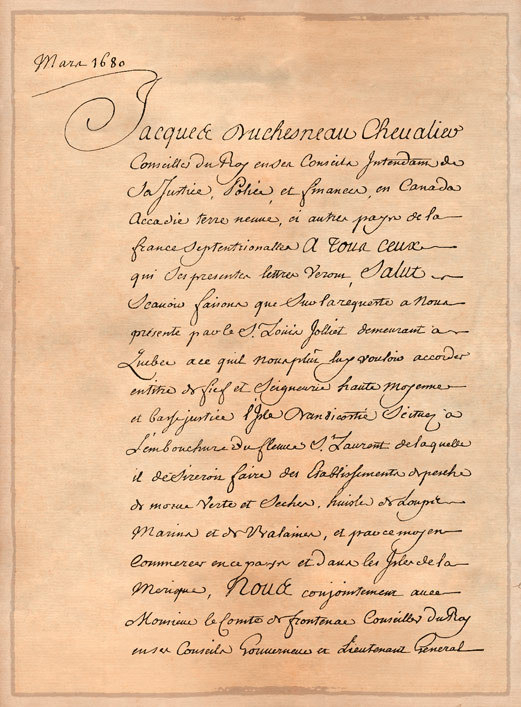 Mars 1680
Jacques Duchesneau Chevalier
Conseiller du Roy en ses Conseils Intendant de
Sa Justice, Police, et finances, en Canada
Accadie terre neuve, et autres pays de la
france Septentrionalle A Tous ceux
qui Ses presentes lettres Verront, Salut
Scavoir faisons que Sur la requeste a Nous
presenté par le Sr. Louis Jolliet demeurant a
Quebec a ce quil nous plût luy vouloir accorder
en titre de fief et Seigneurie haute moyenne
et basse justice l'Isle Danticostie Scituez a
L'embouchure du fleuve St. Laurent de laquelle
il desireroit faire des Etablissements de pesche
de morue Verte et Seche, huisle de Loups
Marins et de Balaines, et par ce moyen
Commercer en ce pays et dans les Isles de la
Merique, Nous conjointement avec
Monsieur le Comte de frontenac Conseiller du Roy
en ses Conseils Gouverneur et Lieutenant General